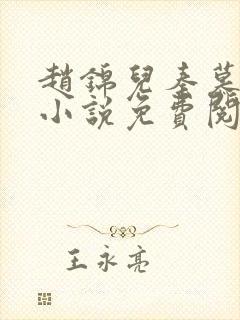 趙錦兒秦慕
小說免費閱
王永亮